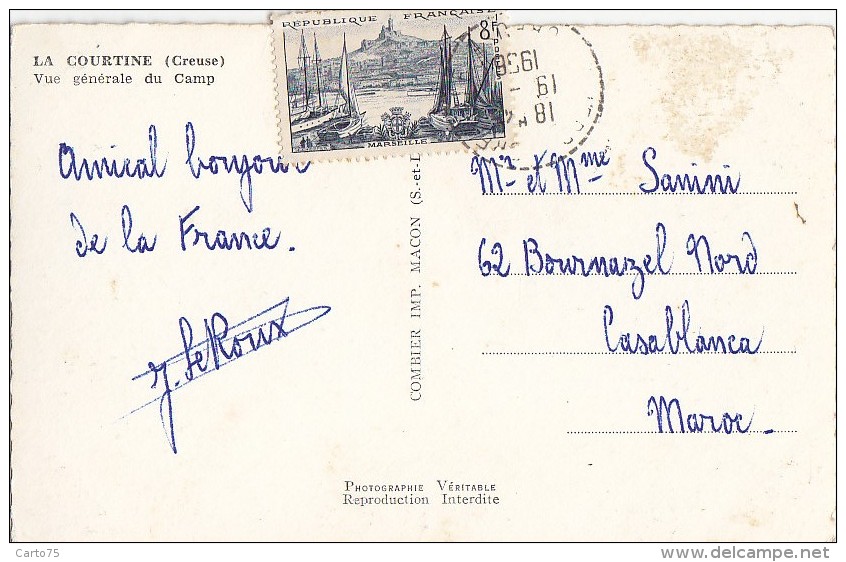 LA COURTINE (Creuse)
Vue générale du Camp
REPUBLIQUE FRANÇAISE
8F
POSTES
MARSEILLE
18 H
19 -
1956
Amical bonjour
de la France.
J. Le Roux
COMBIER IMP. MACON (S.-et-L
Mr et Mme Sanini
62 Bournazel Nord
Casablanca
Maroc -
PHOTOGRAPHIE VÉRITABLE
Reproduction Interdite
Carto75
www.delcampe.net